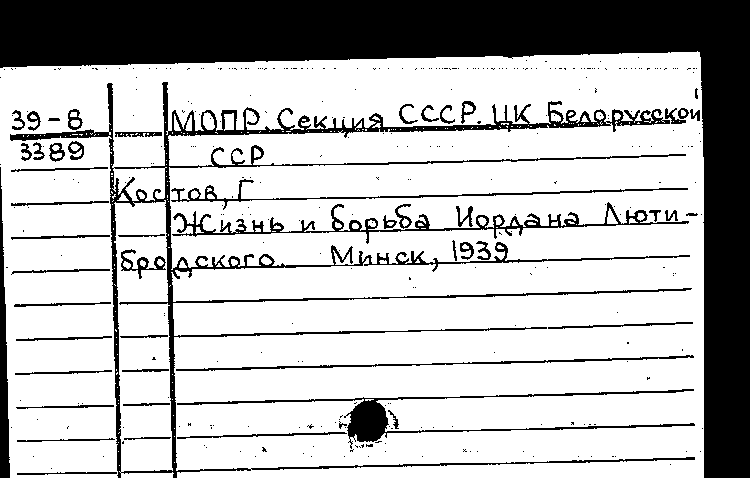 39-8 МОПР. Секция СССР. ЦК Белорусской
3389 ССР.
Костов, Г
Жизнь и борьба Иордана Люти-
бродского. Минск, 1939